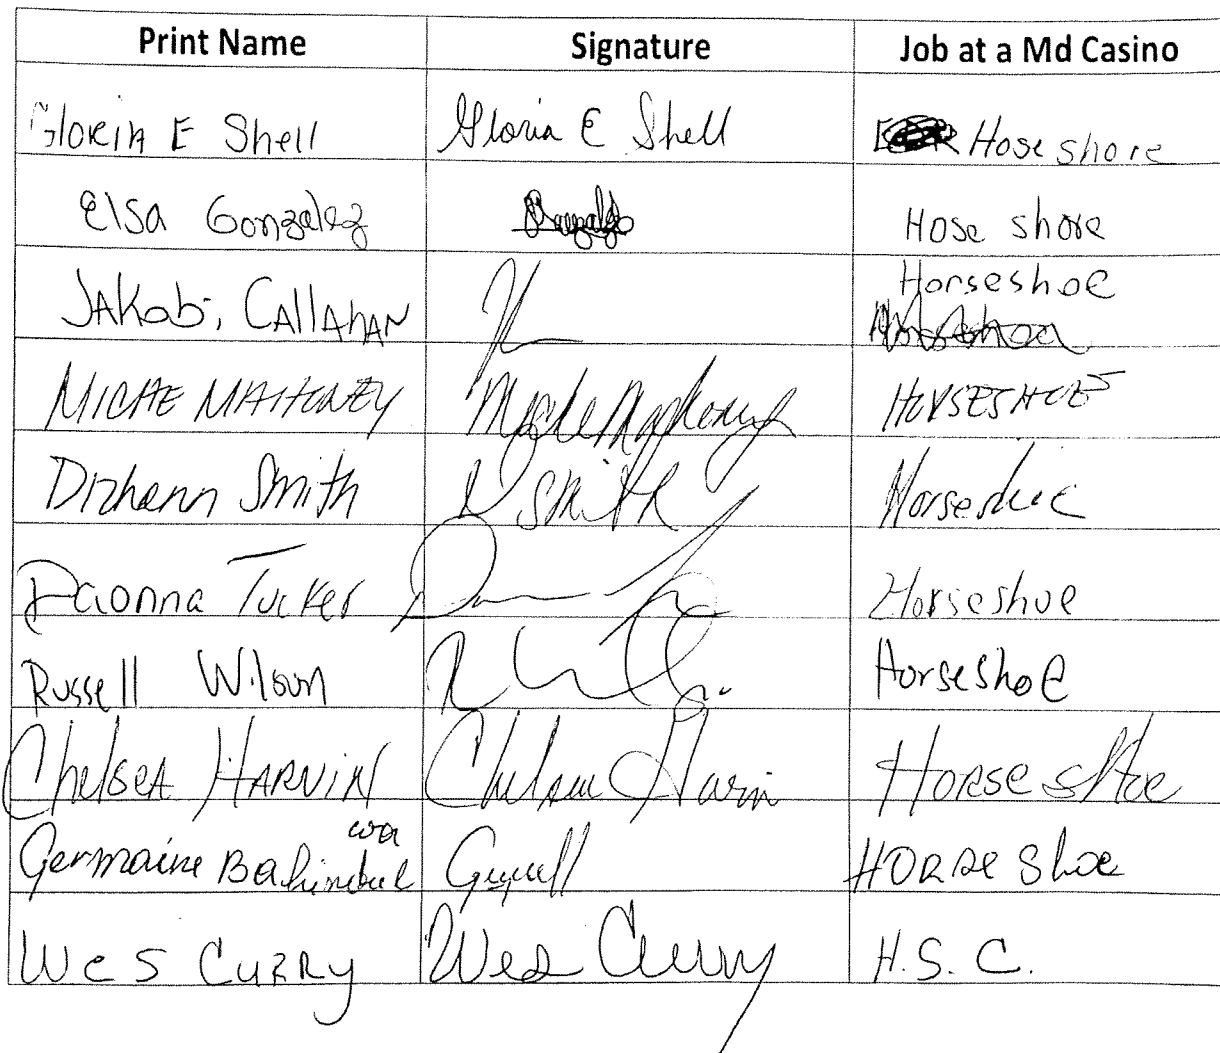 Print Name Signature Job at a Md Casino
Gloria E Shell Gloria E Shell Hose shore
Elsa Gonzalez Hose shore
Jakobi, Callahan Horseshoe
MICHAE MAHONEY HORSESHOE
Smith D Smith Horseshoe
Daonna Tucker Horseshoe
Russell Wilson Horseshoe
Chelsea HARVIN Chelsea Harvin Horse shoe
Germaine HORSE Shoe
Wes Curry Wes Curry H.S. C.